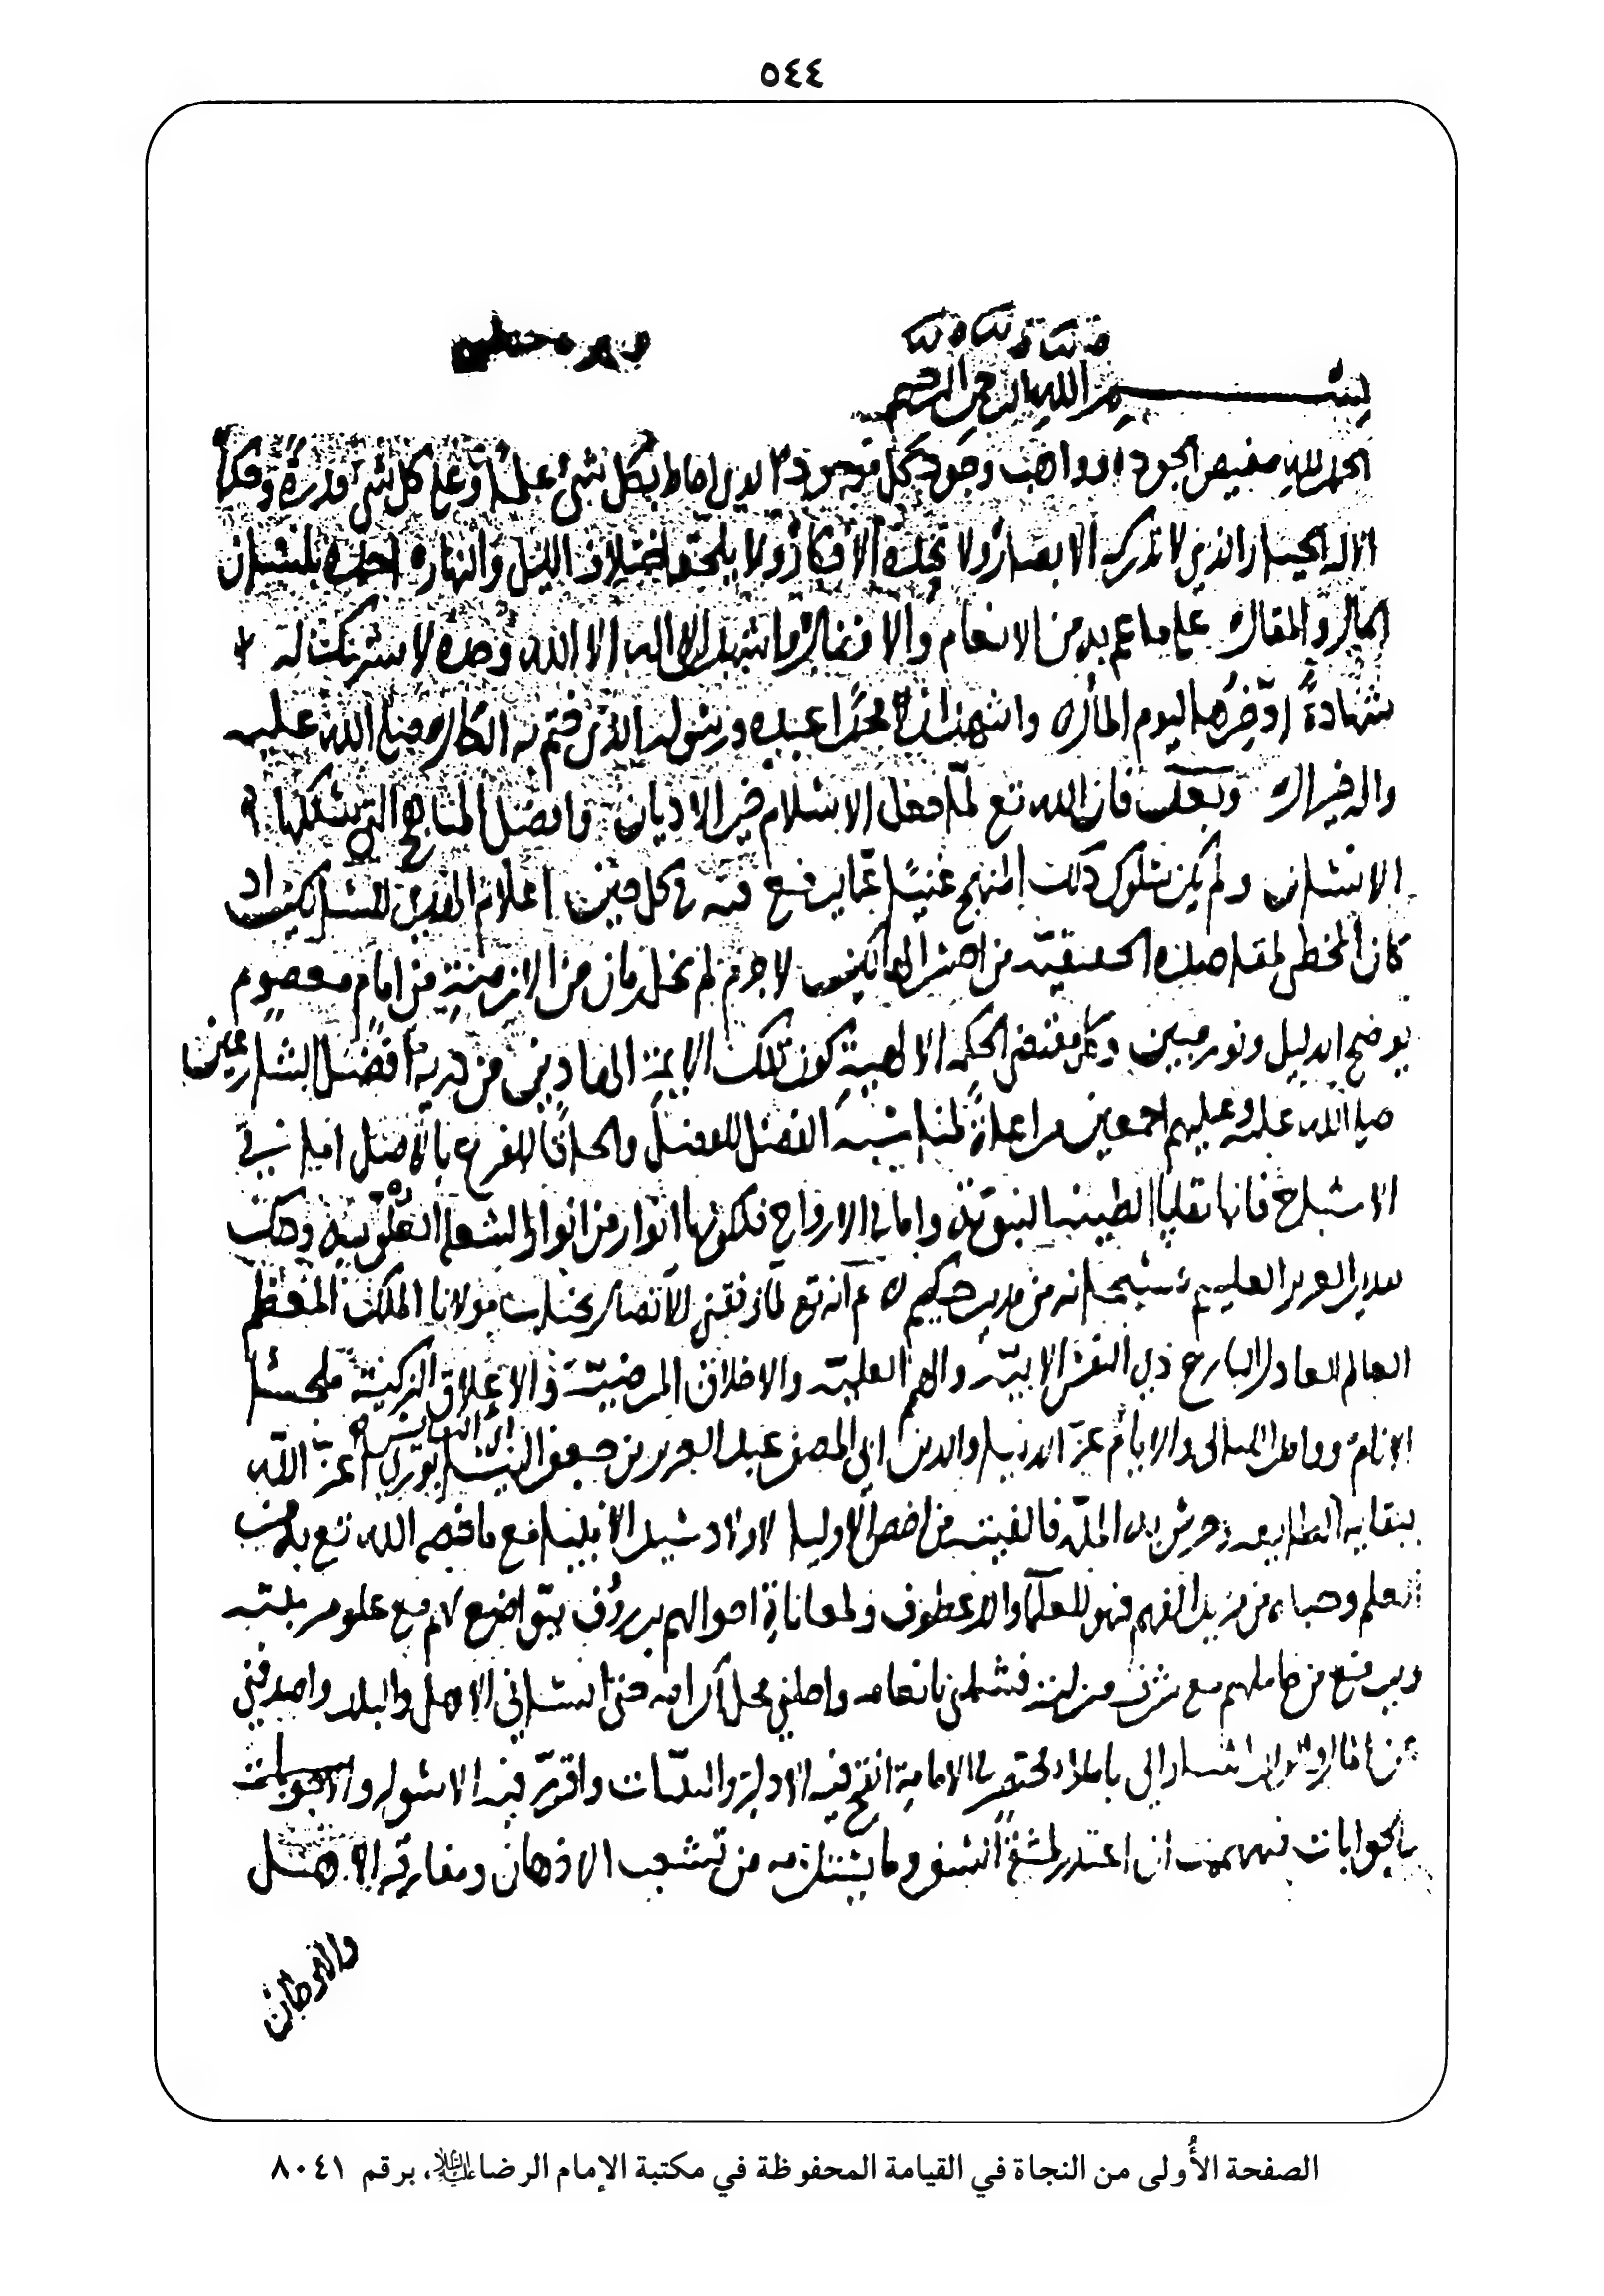 ٥٤٤
بسم الله الرحمن الرحيم
الحمد لله مفيض الجود وواهب وجود كل موجود الذي احاط بكل شئ علما وعلى كل شئ قدرة وحكما
الاله الجبار الذي لا تدركه الابصار ولا تحده الافكار ولا يلحقه اختلاف الليل والنهار احمده بلسان
الحال والمقال على ما عم به من الانعام والافضال واشهد ان لا اله الا الله وحده لا شريك له
شهادة ادخرها ليوم المآل واشهد ان محمدا عبده ورسوله الذي ختم به الكمال صلى الله عليه
واله خير ال وبعد فان الله تع لما جعل الاسلام خير الاديان وافضل المناهج التي سلكها
الانسان ولم يكن سلوك ذلك المنهج غنيا عما يرفع فيه في كل حين اعلام الدين للسالكين اذ
كان المخطي لمقاصده الحقيقية من اخسر الهالكين لا جرم لم يخل زمان من الازمنة من امام معصوم
يوضح الدليل ونور مبين وكان مقتضى الحكمة الالهية كون تلك الايمة الهادين من ذرية افضل الشارعين
صلى الله عليه وعليهم اجمعين مراعاة لمناسبة الفضل للفضل والحاقا للفرع بالاصل اما في
الاشباح فانها بقايا الطينة النبوية واما في الارواح فلكونها انوار من انوار الشعلة العلوية وذلك
تقدير العزيز العليم فسبحانه من مدبر حكيم ثم انه تع لما وفقني للاتصال بجناب مولانا الملك المعظم
العالم العادل البارع ذي النفس الابية والهمم العلية والاخلاق المرضية والاعلاق الزكية ملجأ
الانام وواحد الليالي والايام عز الدنيا والدين ابي المظفر عبد العزيز بن جعفر النيسابوري اعز الله
ببقايه الطايفة وحرس به الملة فالفيته من اخص الاوليا لاولاد سيد الانبيا مع ما خصه الله تع به من
العلم وحباه من مزيد الفهم فهو للعلما والد عطوف ولمعاناة احوالهم بر رؤف يتواضع لهم مع علو مرتبته
ويرفع من خاملهم مع شرف منزلته فشملني بانعامه واحلني محل اكرامه حتى انساني الاهل والبلد واصدفني
عن المال والولد اشار الي باملاء مختصر في الامامة انقح فيه الادلة والبينات واقرر فيه الاسولة والاجوبات
بالجوابات فهممت ان اعتذر لمشقة السفر وما يستلزمه من تشعب الاذهان ومفارقة الاهل
والاوطان
الصفحة الأولى من النجاة في القيامة المحفوظة في مكتبة الإمام الرضا عليه السلام، برقم ٨٠٤١